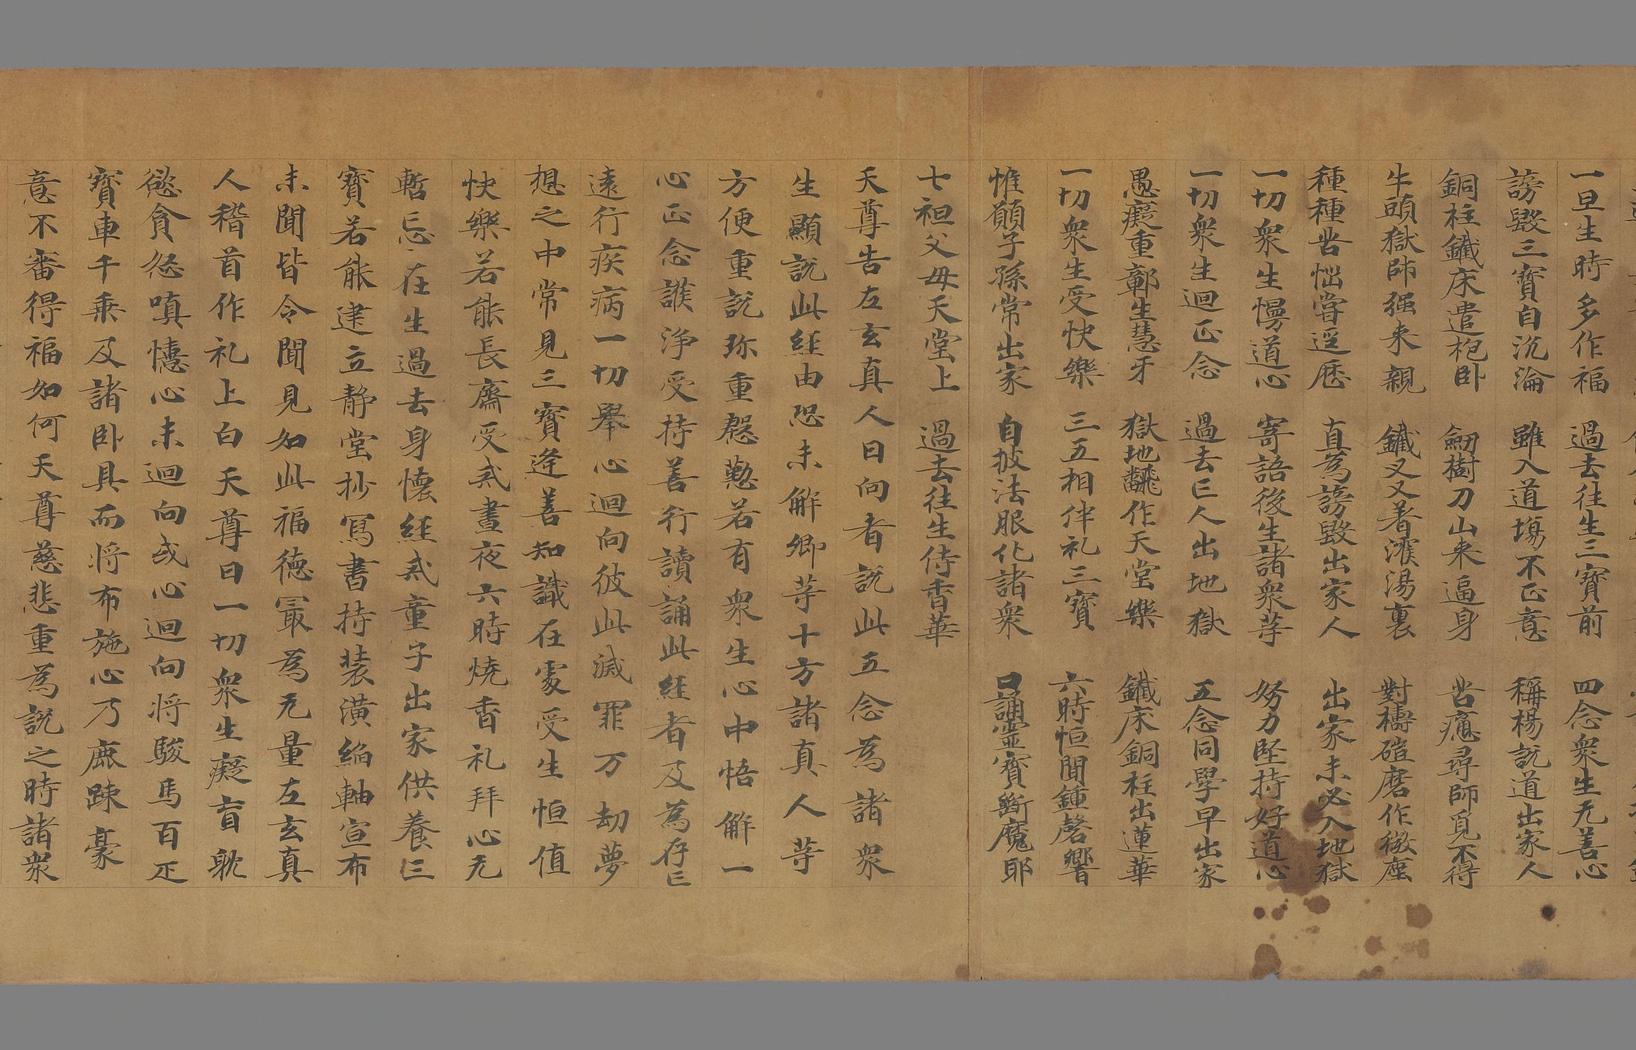 一旦生時多作福　過去往生三寶前　四念衆生无善心
謗毀三寶自沉淪　雖入道場不正意　稱楊說道出家人
銅柱鐵床遣抱卧　劒樹刀山來逼身　苦痛尋師覓不得
牛頭獄師强來親　鐵叉叉著濩湯裏　對擣磑磨作微塵
種種苦惱皆逕歷　直為謗毀出家人　出家未必入地獄
一切衆生慢道心　寄語後生諸衆䓁　努力堅持好道心
一切衆生迴正念　過去亡人出地獄　五念同學早出家
愚癡重鄣生慧牙　獄地飜作天堂樂　鐵床銅柱出蓮華
一切衆生受快樂　三五相伴礼三寶　六時恒聞鍾磬響
惟願子孫常出家　自披法服化諸衆　口誦靈寶斷魔耶
七祖父母天堂上　過去往生侍香華
天尊告左玄真人曰向者說此五念為諸衆
生顯說此經由恐未解卿䓁十方諸真人䓁
方便重說弥重慇懃若有衆生心中悟解一
心正念謙淨受持善行讀誦此經者及為存亡
遠行疾病一切舉心迴向彼此滅罪万劫夢
想之中常見三寶逢善知識在處受生恒值
快樂若能長齋受戒晝夜六時燒香礼拜心无
暫忘在生過去身懷經戒童子出家供養三
寶若能建立静堂抄寫書持裝潢綸軸宣布
未聞皆令聞見如此福德冣為无量左玄真
人稽首作礼上白天尊曰一切衆生癡盲躭
慾貪怒嗔慳心未迴向或心迴向将駿馬百疋
寶車千乗及諸卧具而将布施心乃麁踈豪
意不審得福如何天尊慈悲重為說之時諸衆